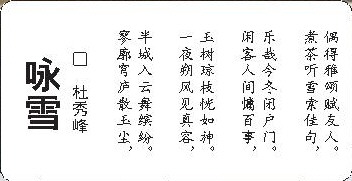 咏雪
□ 杜秀峰
寥廓穹庐散玉尘，
半城入云舞缤纷。
一夜朔风见真容，
玉树琼枝恍如神。
闲客人间慵百事，
乐哉今冬闭户门。
煮茶听雪索佳句，
偶得雅颂赋友人。